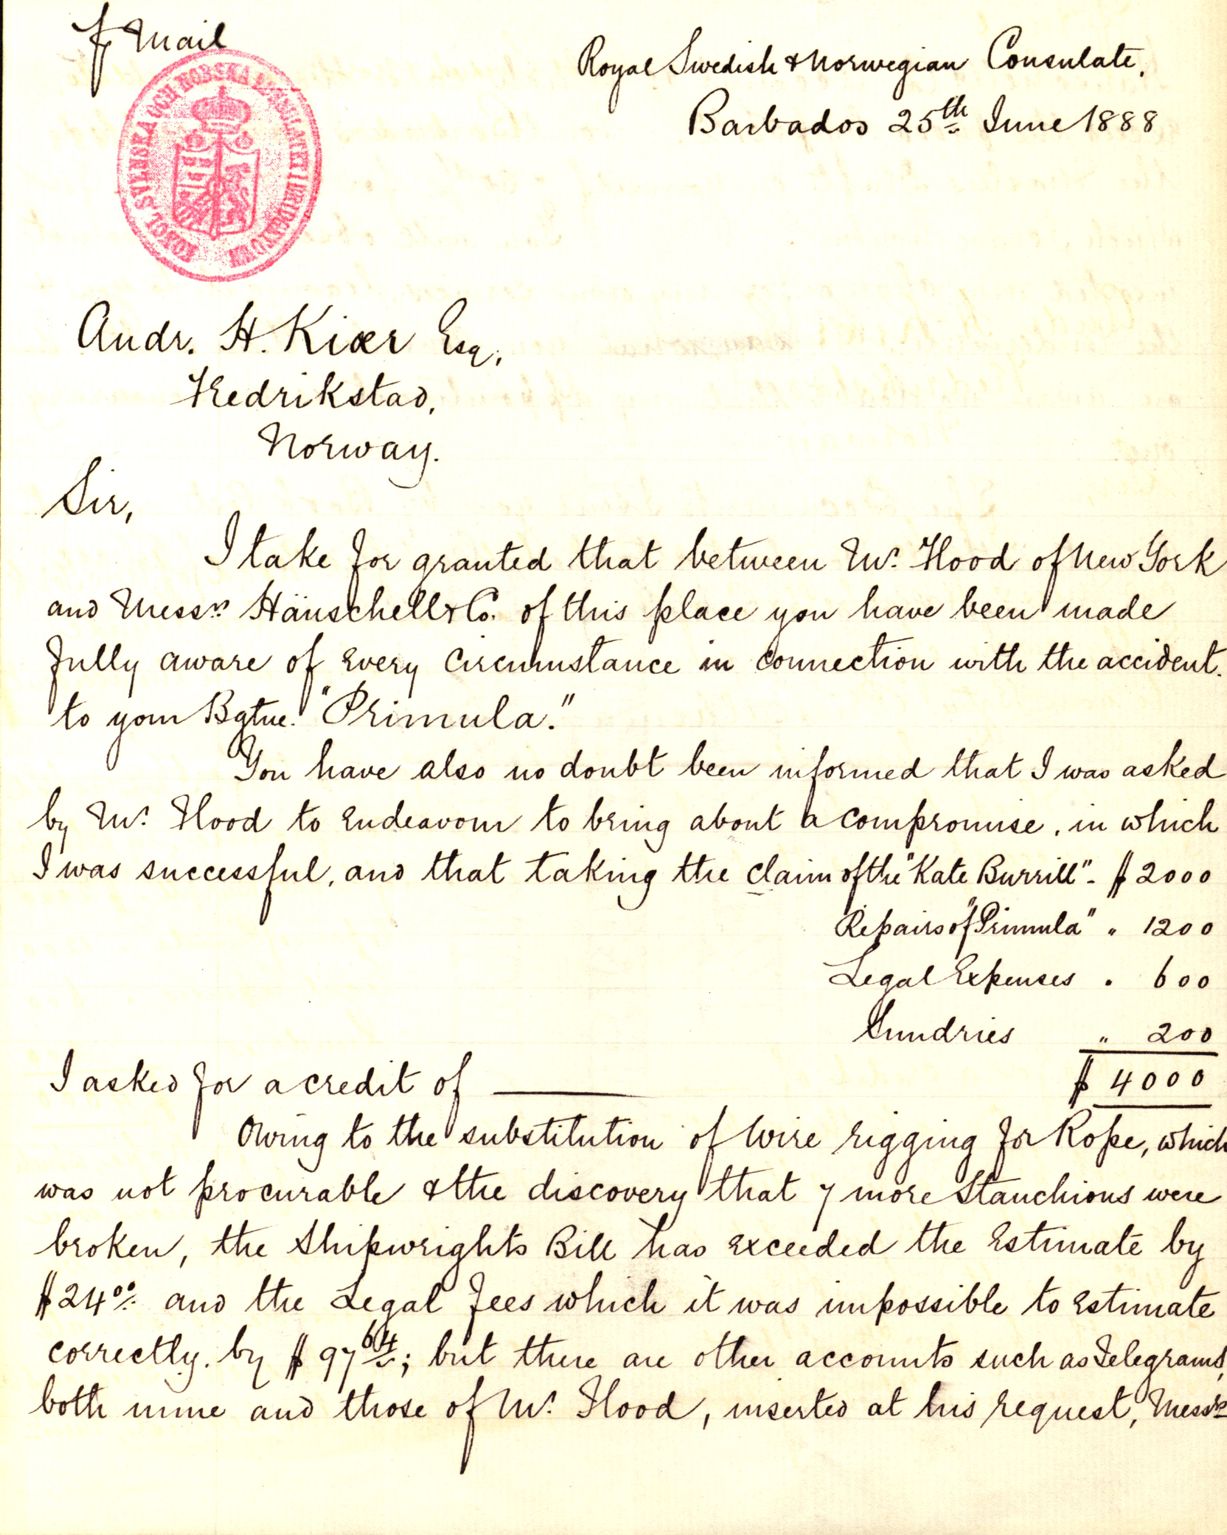 p Mail
Royal Swedish & Norwegian Consulate,
Barbados 25th June 1888
KONGL. SVENSKA OCH NORSKA KONSULATET I BRIDGETOWN
Andr. H. Kiær Esq,
Fredrikstad,
Norway.
Sir,
I take for granted that between Mr. Hood of New York
and Messrs Hänschell & Co. of this place you have been made
fully aware of every circumstance in connection with the accident
to your Bgtne. "Primula."
You have also no doubt been informed that I was asked
by Mr. Hood to endeavour to bring about a compromise, in which
I was successful, and that taking the claim of the "Kate Burrill" - $2000
Repairs of "Primula" " 1200
Legal Expenses " 600
Sundries " 200
I asked for a credit of $ 4000
Owing to the substitution of wire rigging for Rope, which
was not procurable & the discovery that 7 more Stanchions were
broken, the Shipwrights Bill has exceeded the Estimate by
$24 00/. and the Legal fees which it was impossible to Estimate
correctly, by $97 64; but there are other accounts such as Telegrams,
both mine and those of Mr. Hood, inserted at his request, Messrs